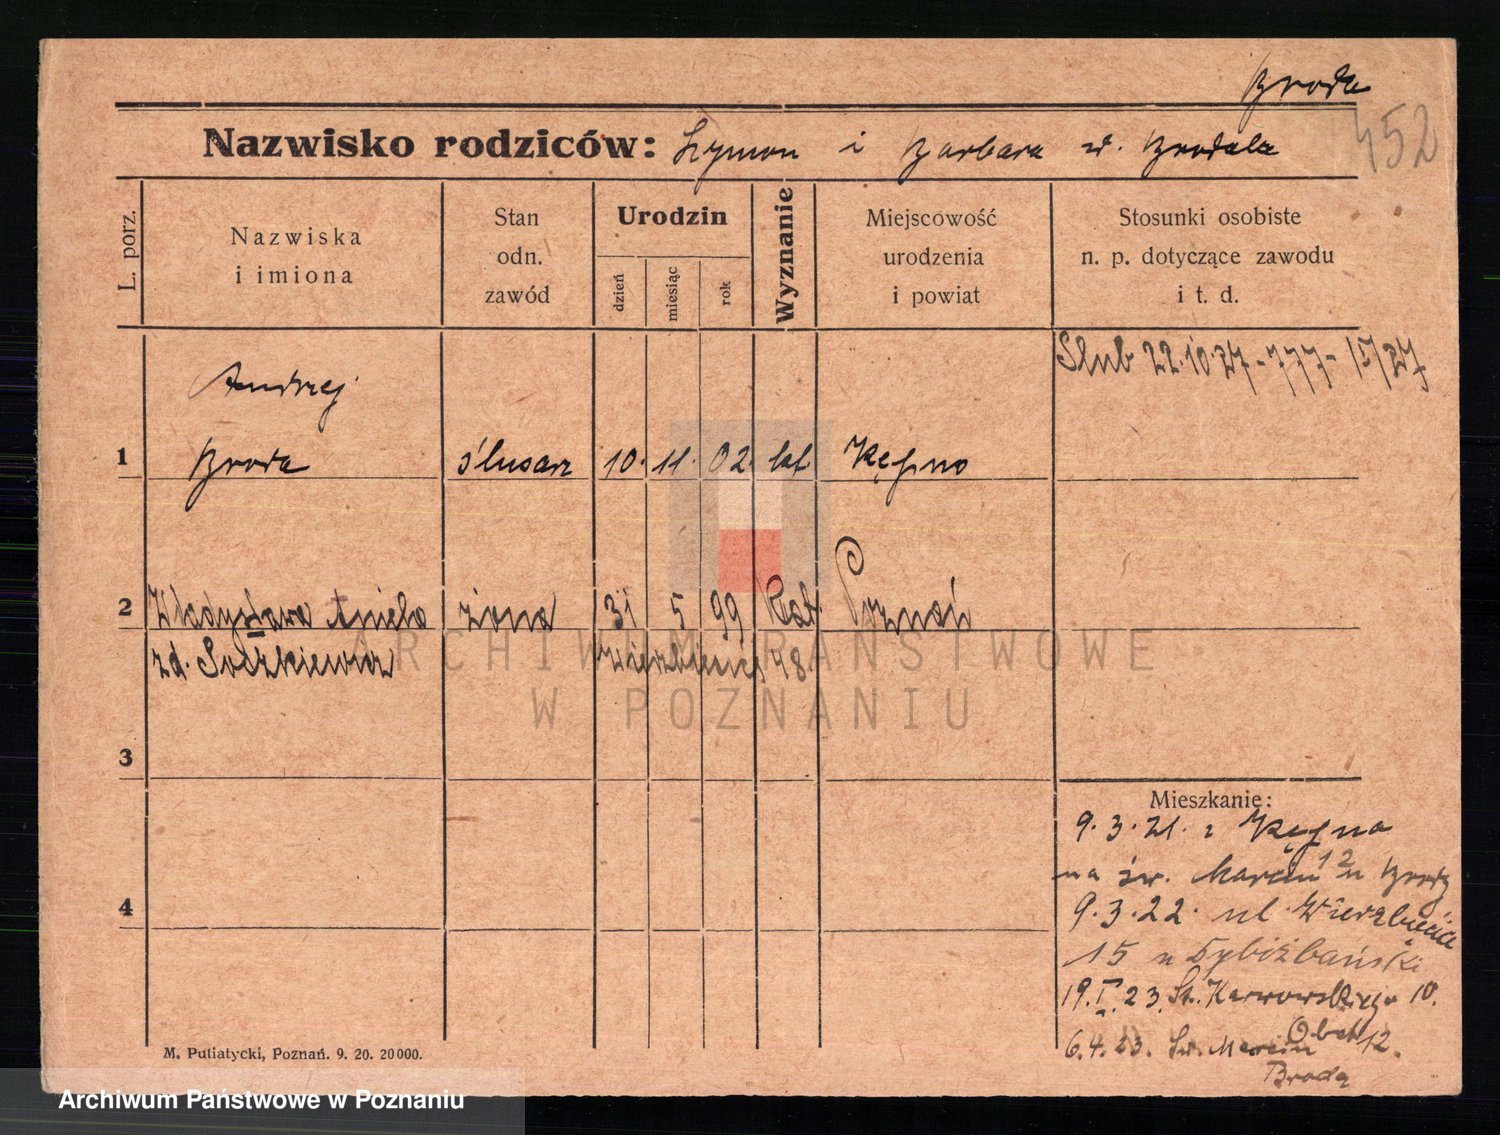 Broda
452
Nazwisko rodziców: Szymon i Barbara z d.
L. porz.
Nazwiska
i imiona
Stan
odn.
zawód
Urodzin
dzień
miesiąc
rok
Wyznanie
Miejscowość
urodzenia
i powiat
Stosunki osobiste
n. p. dotyczące zawodu
i t. d.
Ślub 22.10.27 - 777 - 15/27
Andrzej
1 Broda ślusarz 10. 11. 02. kat Kępno
2 Władysława Aniela żona 31 5 99 Kat. Poznań
zd. Sołzkiewicz Wierzbięcice 48.
3
4
Mieszkanie:
9.3.21. z Kępna
na św. Marcin 12 u Brody
9.3.22. ul. Wierzbięcice
15 u
19.I.23. Karwowskiego 10.
6.4.23. Św. Marcin 12.
Broda
M. Putiatycki, Poznań. 9. 20. 20000.
ARCHIWUM PAŃSTWOWE
W POZNANIU
Archiwum Państwowe w Poznaniu